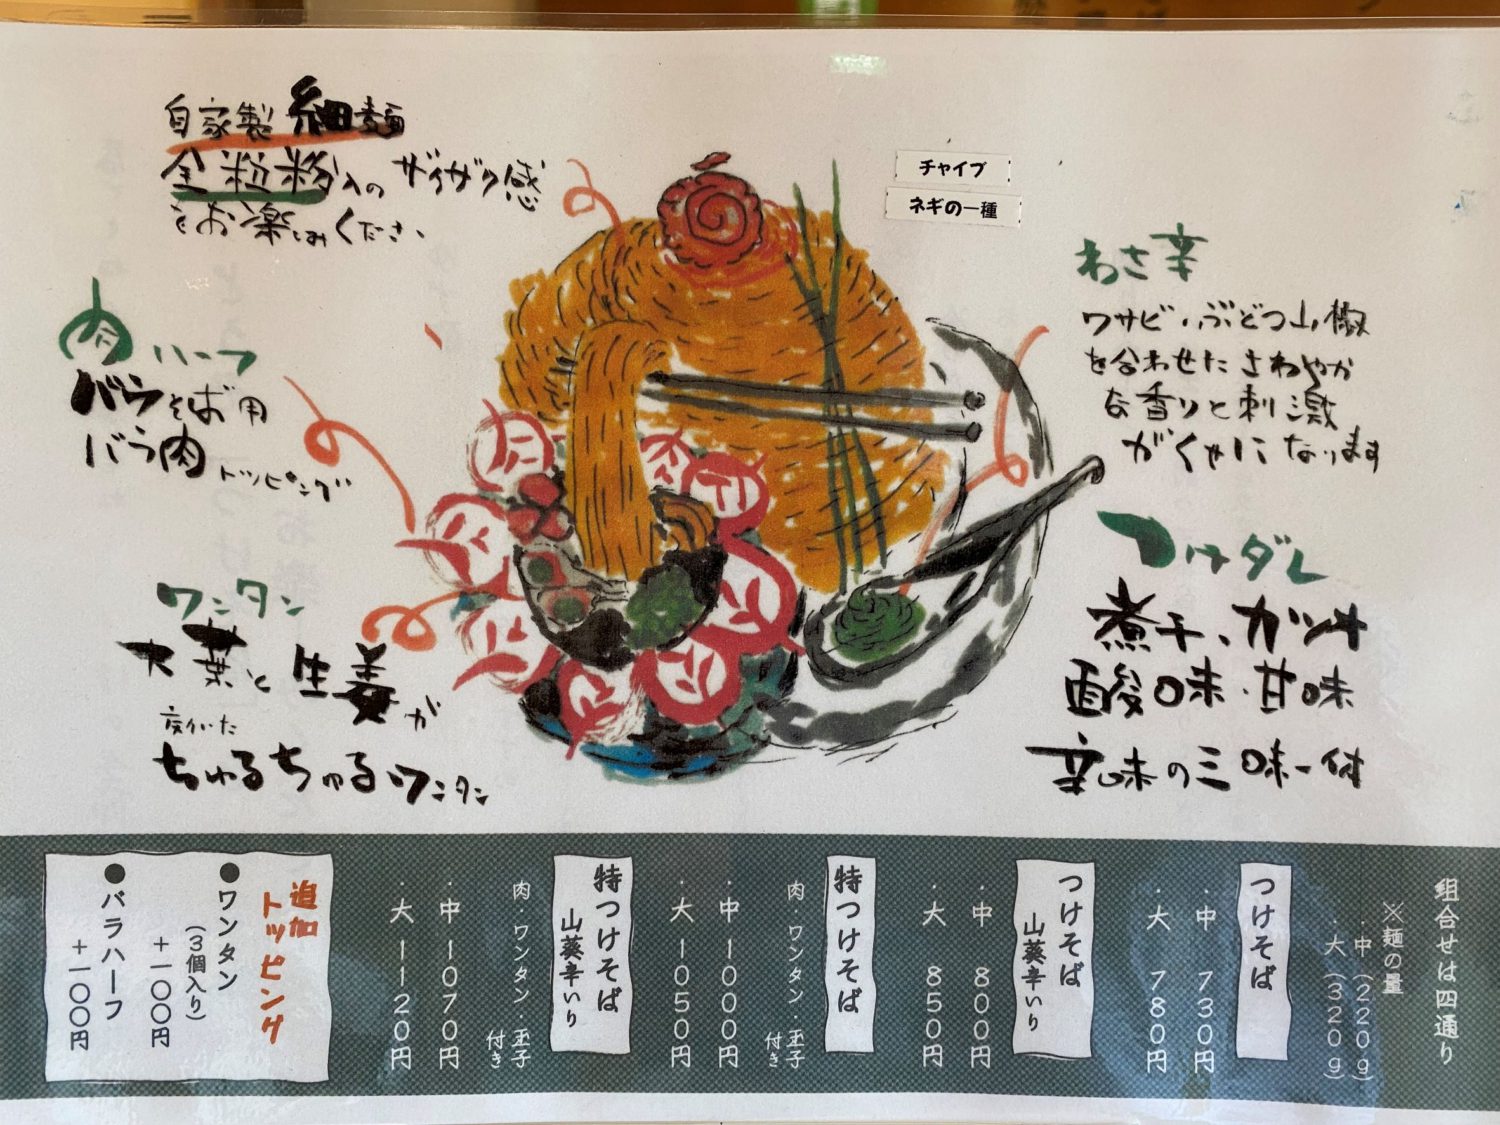 自家製 細麺
全粒粉入の ザクザク感
をお楽しみください
チャイブ
ネギの一種
肉ハーフ
バラそば用
バラ肉トッピング
わさ辛
ワサビ、ぶどう山椒
を合わせたさわやか
な香りと刺激
がくせになります
ワンタン
大葉と生姜が
ちゅるちゅるワンタン
つけダレ
煮干、ガツオ
酸味・甘味
辛味の三味一体
組合せは四通り
※麺の量
・中(220g)
・大(320g)
つけそば
・中 730円
・大 780円
つけそば
山葵辛いり
・中 800円
・大 850円
特つけそば
肉・ワンタン・玉子付き
・中 1000円
・大 1050円
特つけそば
山葵辛いり
肉・ワンタン・玉子付き
・中 1070円
・大 1120円
追加
トッピング
●ワンタン
(3個入り)
+一〇〇円
●バラハーフ
+一〇〇円